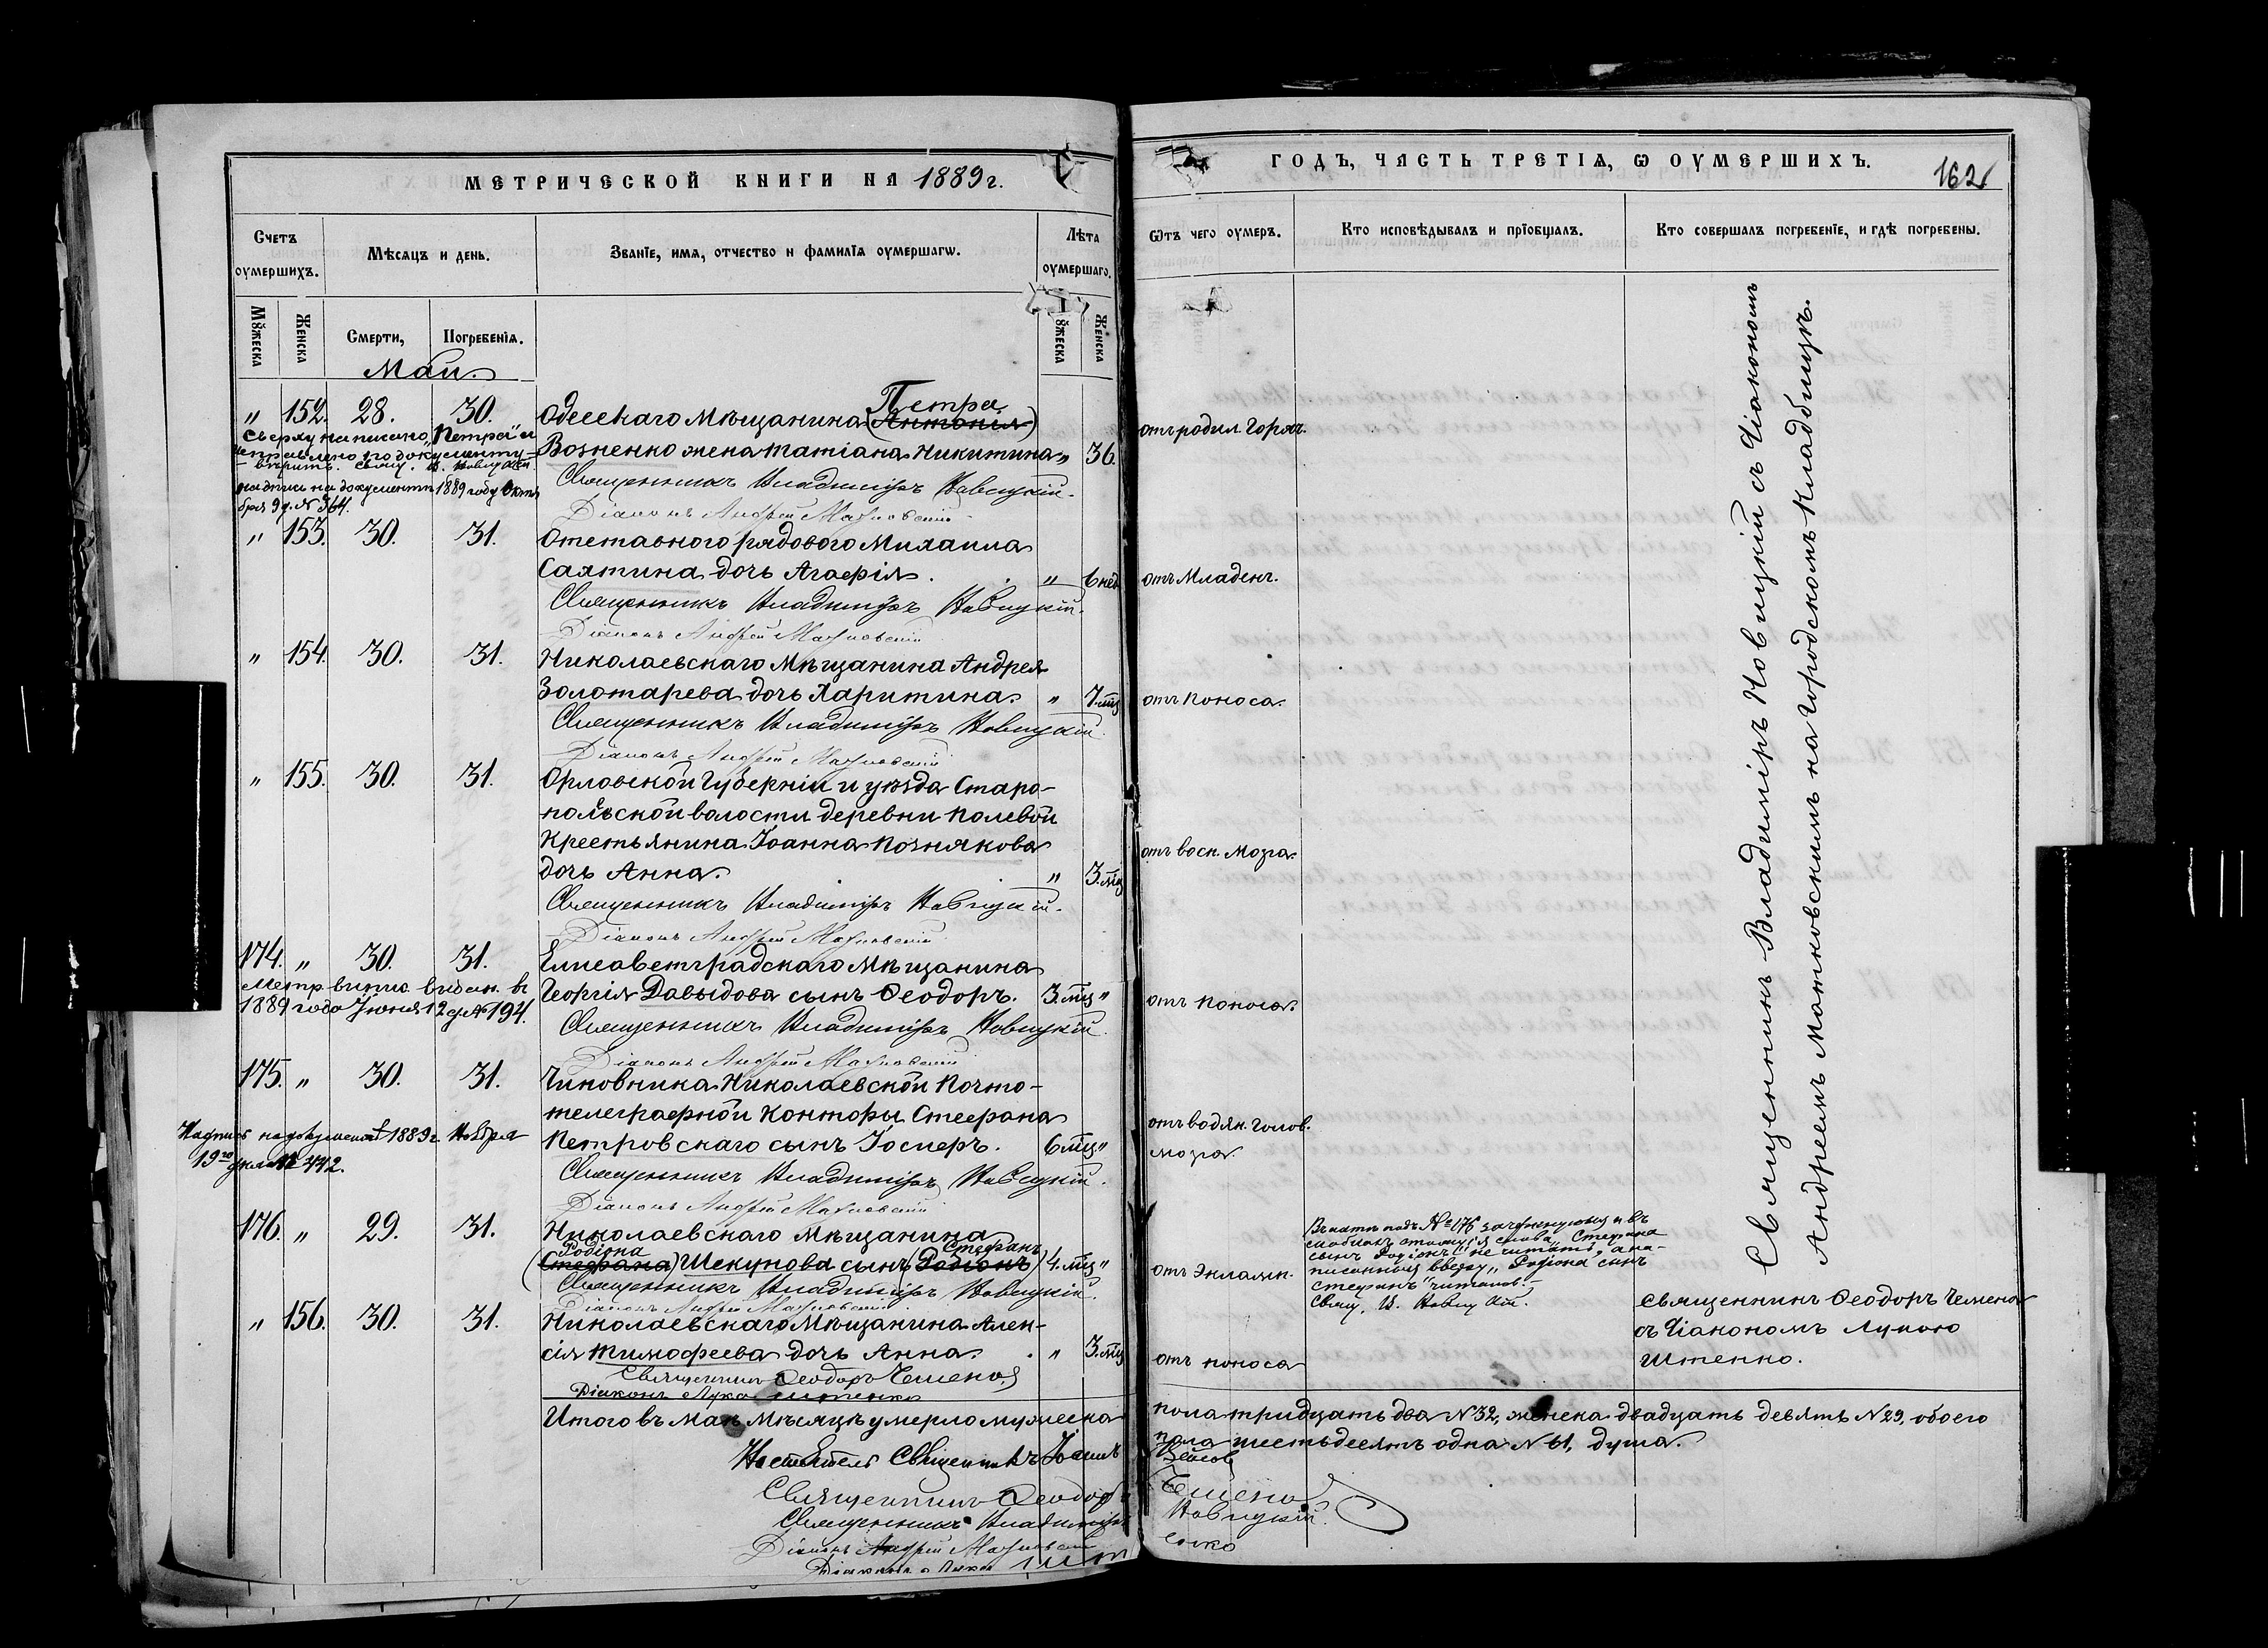 МЕТРИЧЕСКОЙ КНИГИ НА 1889 г.
Счетъ оумершихъ.
Мѣсяцъ и день.
Званїе, имя, отчество и фамилїя оумершагѡ.
Лѣта оумершаго.
Мꙋжеска
Женска
Смерти,
Погребенїя.
Мꙋжеска
Женска
Май.
" 152. 28. 30. Одесскаго Мѣщанина (Антонія) Петра
Возненко жена Татіана Никитина " 36.
Сверху написано „Петра" и
исправлено по документу –
– вѣрить. Свящ. В. Новицкій.
надпись на документѣ 1889 году Октя
бря 9 д. № 364.
Священникъ Владиміръ Новицкій.
Діаконъ Андрей Матковскій
" 153. 30. 31. Отставного рядового Михаила
Саятина дочь Агафія. " 6 нед
Священникъ Владиміръ Новицкій.
Діаконъ Андрей Матковскій
" 154. 30. 31. Николаевскаго Мѣщанина Андрея
Золотарева дочь Харитина. " 7. мц
Священникъ Владиміръ Новицкій
Діаконъ Андрей Матковскій
" 155. 30. 31. Орловской Губерніи и уѣзда Старо-
польской волости деревни Полевой
Крестьянина Іоанна Познякова
дочь Анна. " 3. мц
Священникъ Владиміръ Новицкій.
Діаконъ Андрей Матковскій
174. " 30. 31. Елисаветградскаго Мѣщанина
Георгія Давыдова сынъ Ѳеодоръ. 3. мц "
Метр. выпис. выдан. въ
1889 года Іюня 12 д. № 194.
Священникъ Владиміръ Новицкій.
Діаконъ Андрей Матковскій
175. " 30. 31. Чиновника Николаевской Почто-
телеграфной Конторы Стефана
Петровскаго сынъ Іосифъ. 6 мц. "
Надпись на документѣ 1889 г. Ноября
19го дня № 442.
Священникъ Владиміръ Новицкій.
Діаконъ Андрей Матковскій
176. " 29. 31. Николаевскаго Мѣщанина
Родіона Стефанъ
(Стефана) Шекунова сынъ (Родіонъ) 4. мц "
Священникъ Владиміръ Новицкій.
Діаконъ Андрей Матковскій
" 156. 30. 31. Николаевскаго Мѣщанина Алек-
сія Тимофеева дочь Анна. " 3. мц
Священникъ Ѳеодоръ Чемена
Діаконъ Лука Штенко
Итого въ Маѣ Мѣсяцѣ умерло мужеска
Настоятель Священникъ Іоаннъ
Священникъ Ѳеодоръ
Священникъ Владиміръ
Діаконъ Андрей Матковскій
Діаконъ Лука Шт
ГОДЪ, ЧАСТЬ ТРЕТІЯ, Ѡ ОУМЕРШИХЪ.
162
Ѿтъ чего оумеръ.
Кто исповѣдывалъ и прїобщалъ.
Кто совершалъ погребенїе, и гдѣ погребены.
отъ родил. Горяч.
отъ Младенч.
отъ Поноса.
отъ восп. Мозга.
отъ Поноса.
отъ водян. голов.
мозга.
отъ Эклямп.
отъ поноса
Въ актѣ подъ № 176 зачеркнутыя и въ
скобкахъ стоящія слова „Стефана
сынъ Родіонъ" не читать, а на-
писанныя вверху „Родіона сынъ
Стефанъ" читать. –
Свящ. В. Новицкій.
Священникъ Владиміръ Новицкій съ Діакономъ
Андреемъ Матковскимъ на Городскомъ Кладбищѣ.
Священникъ Ѳеодоръ Чемена
съ Діакономъ Лукою
Штенко.
пола тридцать два № 32, женска двадцать девять № 29, обоего
пола шестьдесятъ одна № 61, душа.
Чемена
Новицкій.
енко